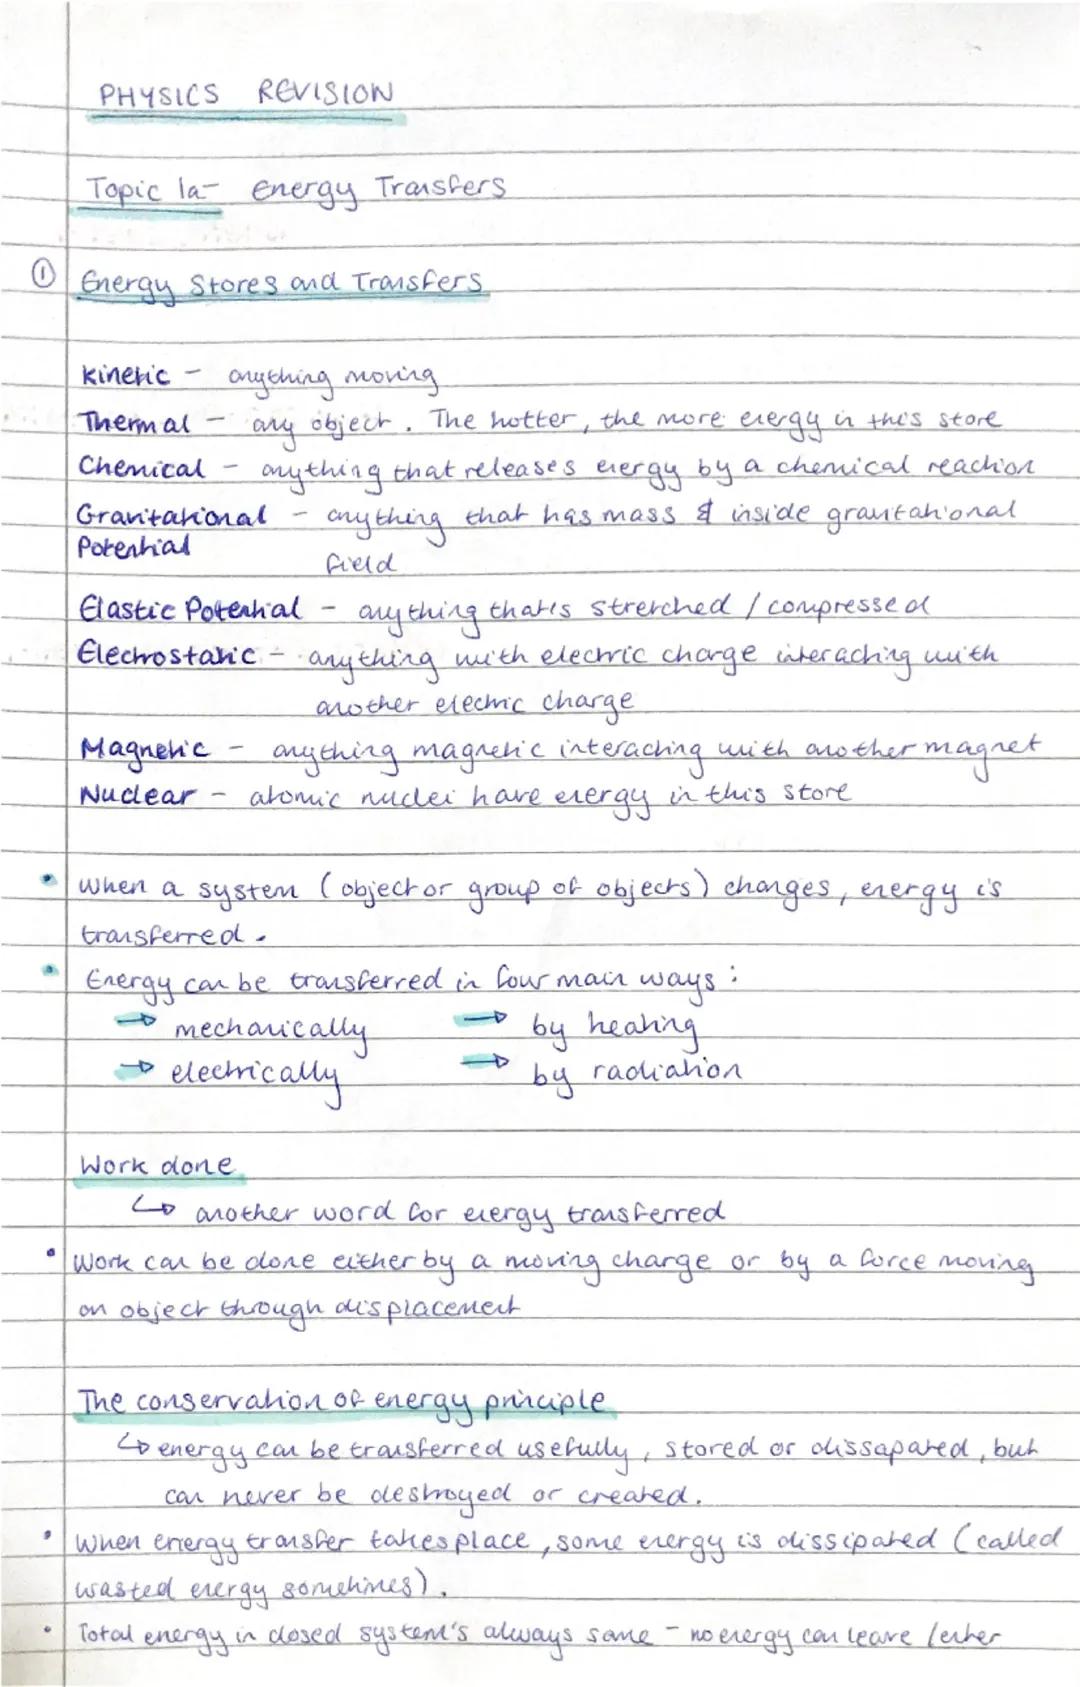 PHYSICS REVISION
Topic 1a- Energy Transfers
① Energy Stores and Transfers
Kinetic - anything moving
Thermal - any object. The hotter, the more energy in this store
Chemical - anything that releases energy by a chemical reaction
Gravitational - anything that has mass & inside gravitational
Potential
field
Elastic Potential - anything that is stretched / compressed
Electrostatic - anything with electric charge interacting with
another electric charge
Magnetic - anything magnetic interacting with another magnet
Nuclear - atomic nuclei have energy in this store
• When a system (object or group of objects) changes, energy is
transferred.
• Energy can be transferred in four main ways:
→ mechanically → by heating
→ electrically → by radiation
Work done
↳ another word for energy transferred
• Work can be done either by a moving charge or by a force moving
an object through displacement
The conservation of energy principle
↳ energy can be transferred usefully, stored or dissapated, but
can never be destroyed or created.
• When energy transfer takes place, some energy is dissipated (called
wasted energy sometimes).
• Total energy in closed system's always same - no energy can leave/enter